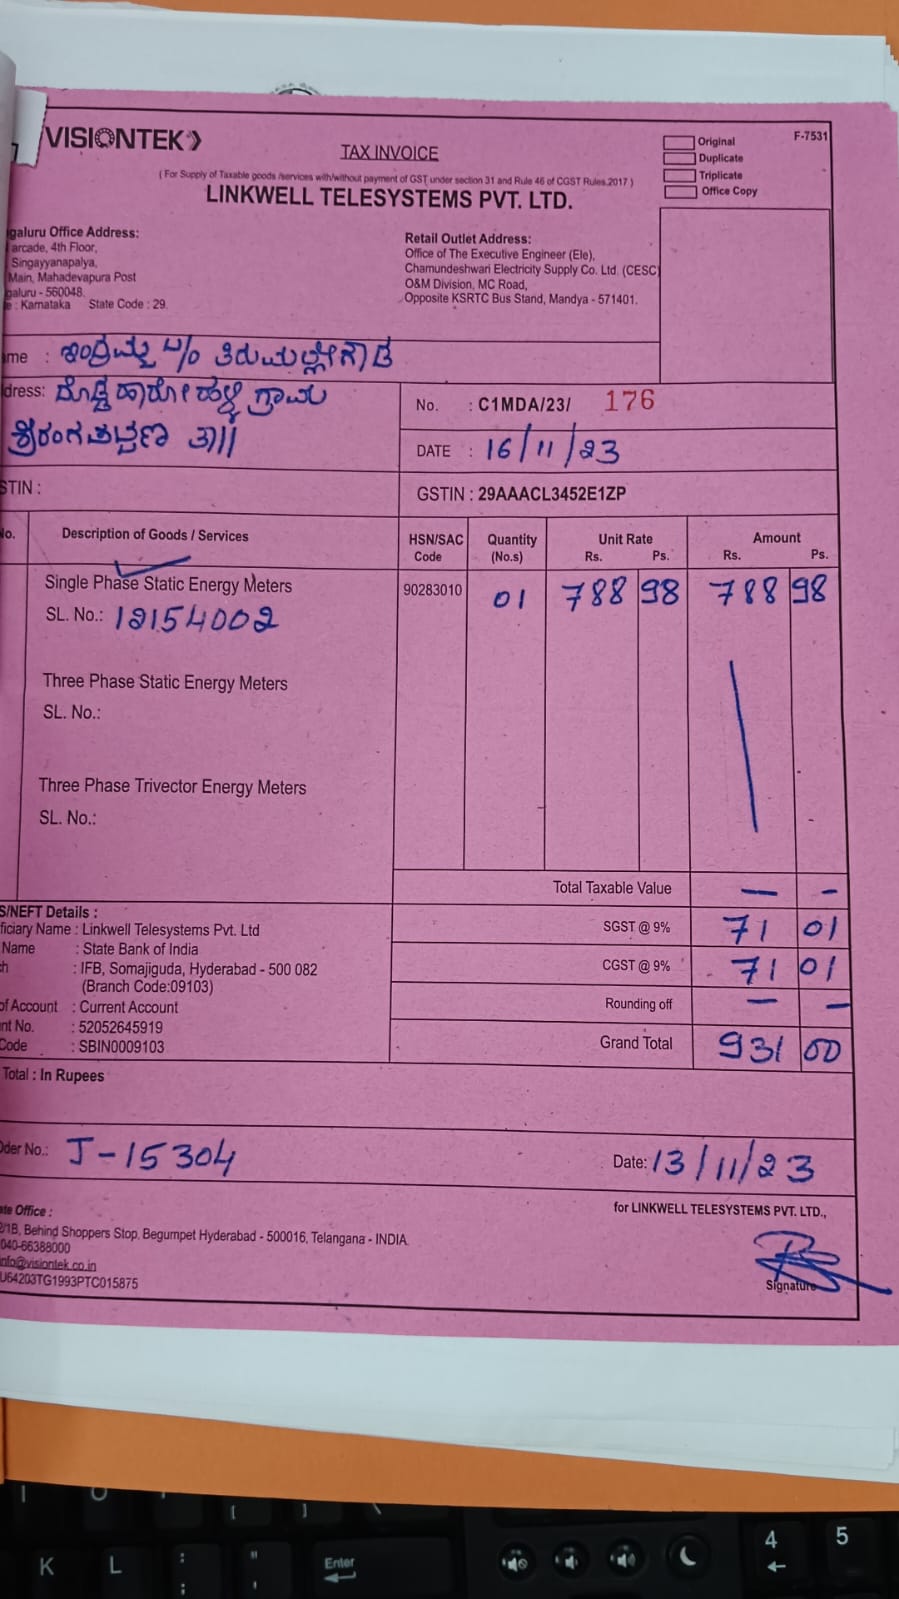 VISIONTEK
TAX INVOICE
Original
Duplicate
Triplicate
Office Copy
F-7531
( For Supply of Taxable goods /services with/without payment of GST under section 31 and Rule 46 of CGST Rules.2017 )
LINKWELL TELESYSTEMS PVT. LTD.
galuru Office Address:
arcade, 4th Floor,
Singayyanapalya,
Main, Mahadevapura Post
galuru - 560048.
e : Karnataka State Code : 29.
Retail Outlet Address:
Office of The Executive Engineer (Ele),
Chamundeshwari Electricity Supply Co. Ltd. (CESC)
O&M Division, MC Road,
Opposite KSRTC Bus Stand, Mandya - 571401.
ame : ಇಂದ್ರಮ್ಮ W/o ತಿರುಮಲ್ಲೇಗೌಡ
dress: ದೊಡ್ಡಹಾರೋಹಳ್ಳಿ ಗ್ರಾಮ
ಶ್ರೀರಂಗಪಟ್ಟಣ ತಾ||
No. : C1MDA/23/ 176
DATE : 16/11/23
STIN :
GSTIN : 29AAACL3452E1ZP
No. Description of Goods / Services HSN/SAC Code Quantity (No.s) Unit Rate Rs. Ps. Amount Rs. Ps.
Single Phase Static Energy Meters 90283010 01 788 98 788 98
SL. No.: 12154002
Three Phase Static Energy Meters
SL. No.:
Three Phase Trivector Energy Meters
SL. No.:
Total Taxable Value — -
S/NEFT Details :
ficiary Name : Linkwell Telesystems Pvt. Ltd
Name : State Bank of India
ch : IFB, Somajiguda, Hyderabad - 500 082
(Branch Code:09103)
of Account : Current Account
nt No. : 52052645919
Code : SBIN0009103
SGST @ 9% 71 01
CGST @ 9% 71 01
Rounding off — —
Grand Total 931 00
Total : In Rupees
der No.: J-15304
Date: 13/11/23
ate Office :
2/1B, Behind Shoppers Stop, Begumpet Hyderabad - 500016, Telangana - INDIA.
040-66388000
info@visiontek.co.in
U64203TG1993PTC015875
for LINKWELL TELESYSTEMS PVT. LTD.,
Signature
K L : ; " ' Enter 4 5